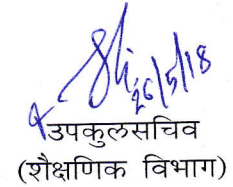 26/5/18
उपकुलसचिव
(शैक्षणिक विभाग)